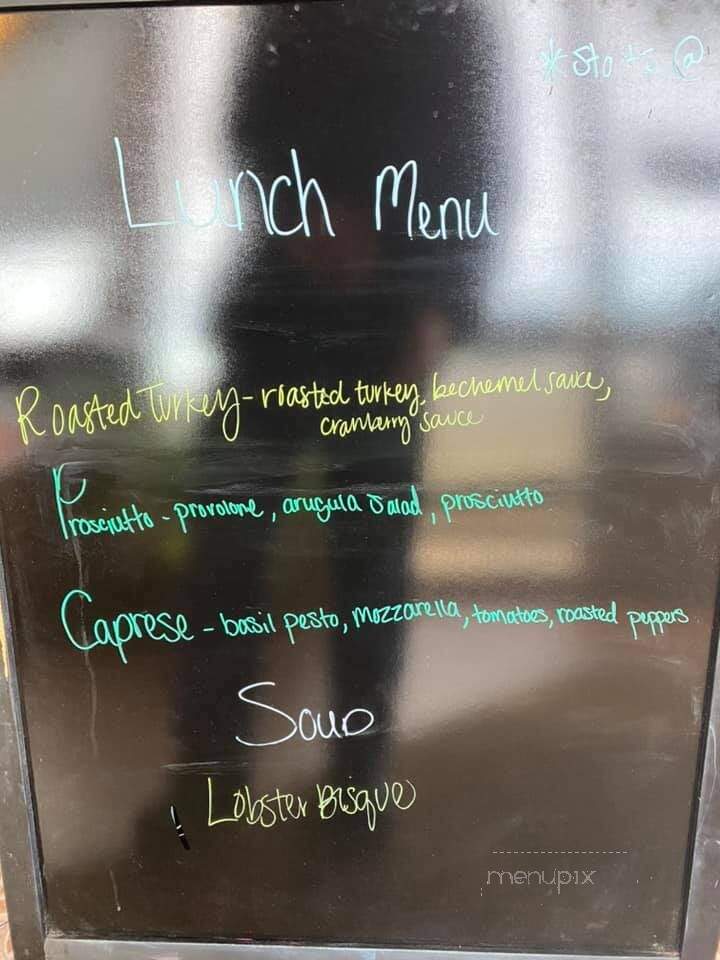 @
Lunch Menu
Roasted Turkey - roasted turkey, bechemel sauce,
cranberry sauce
Prosciutto - provolone, arugula salad, prosciutto
Caprese - basil pesto, mozzarella, tomatoes, roasted peppers
Soup
Lobster Bisque
menupix